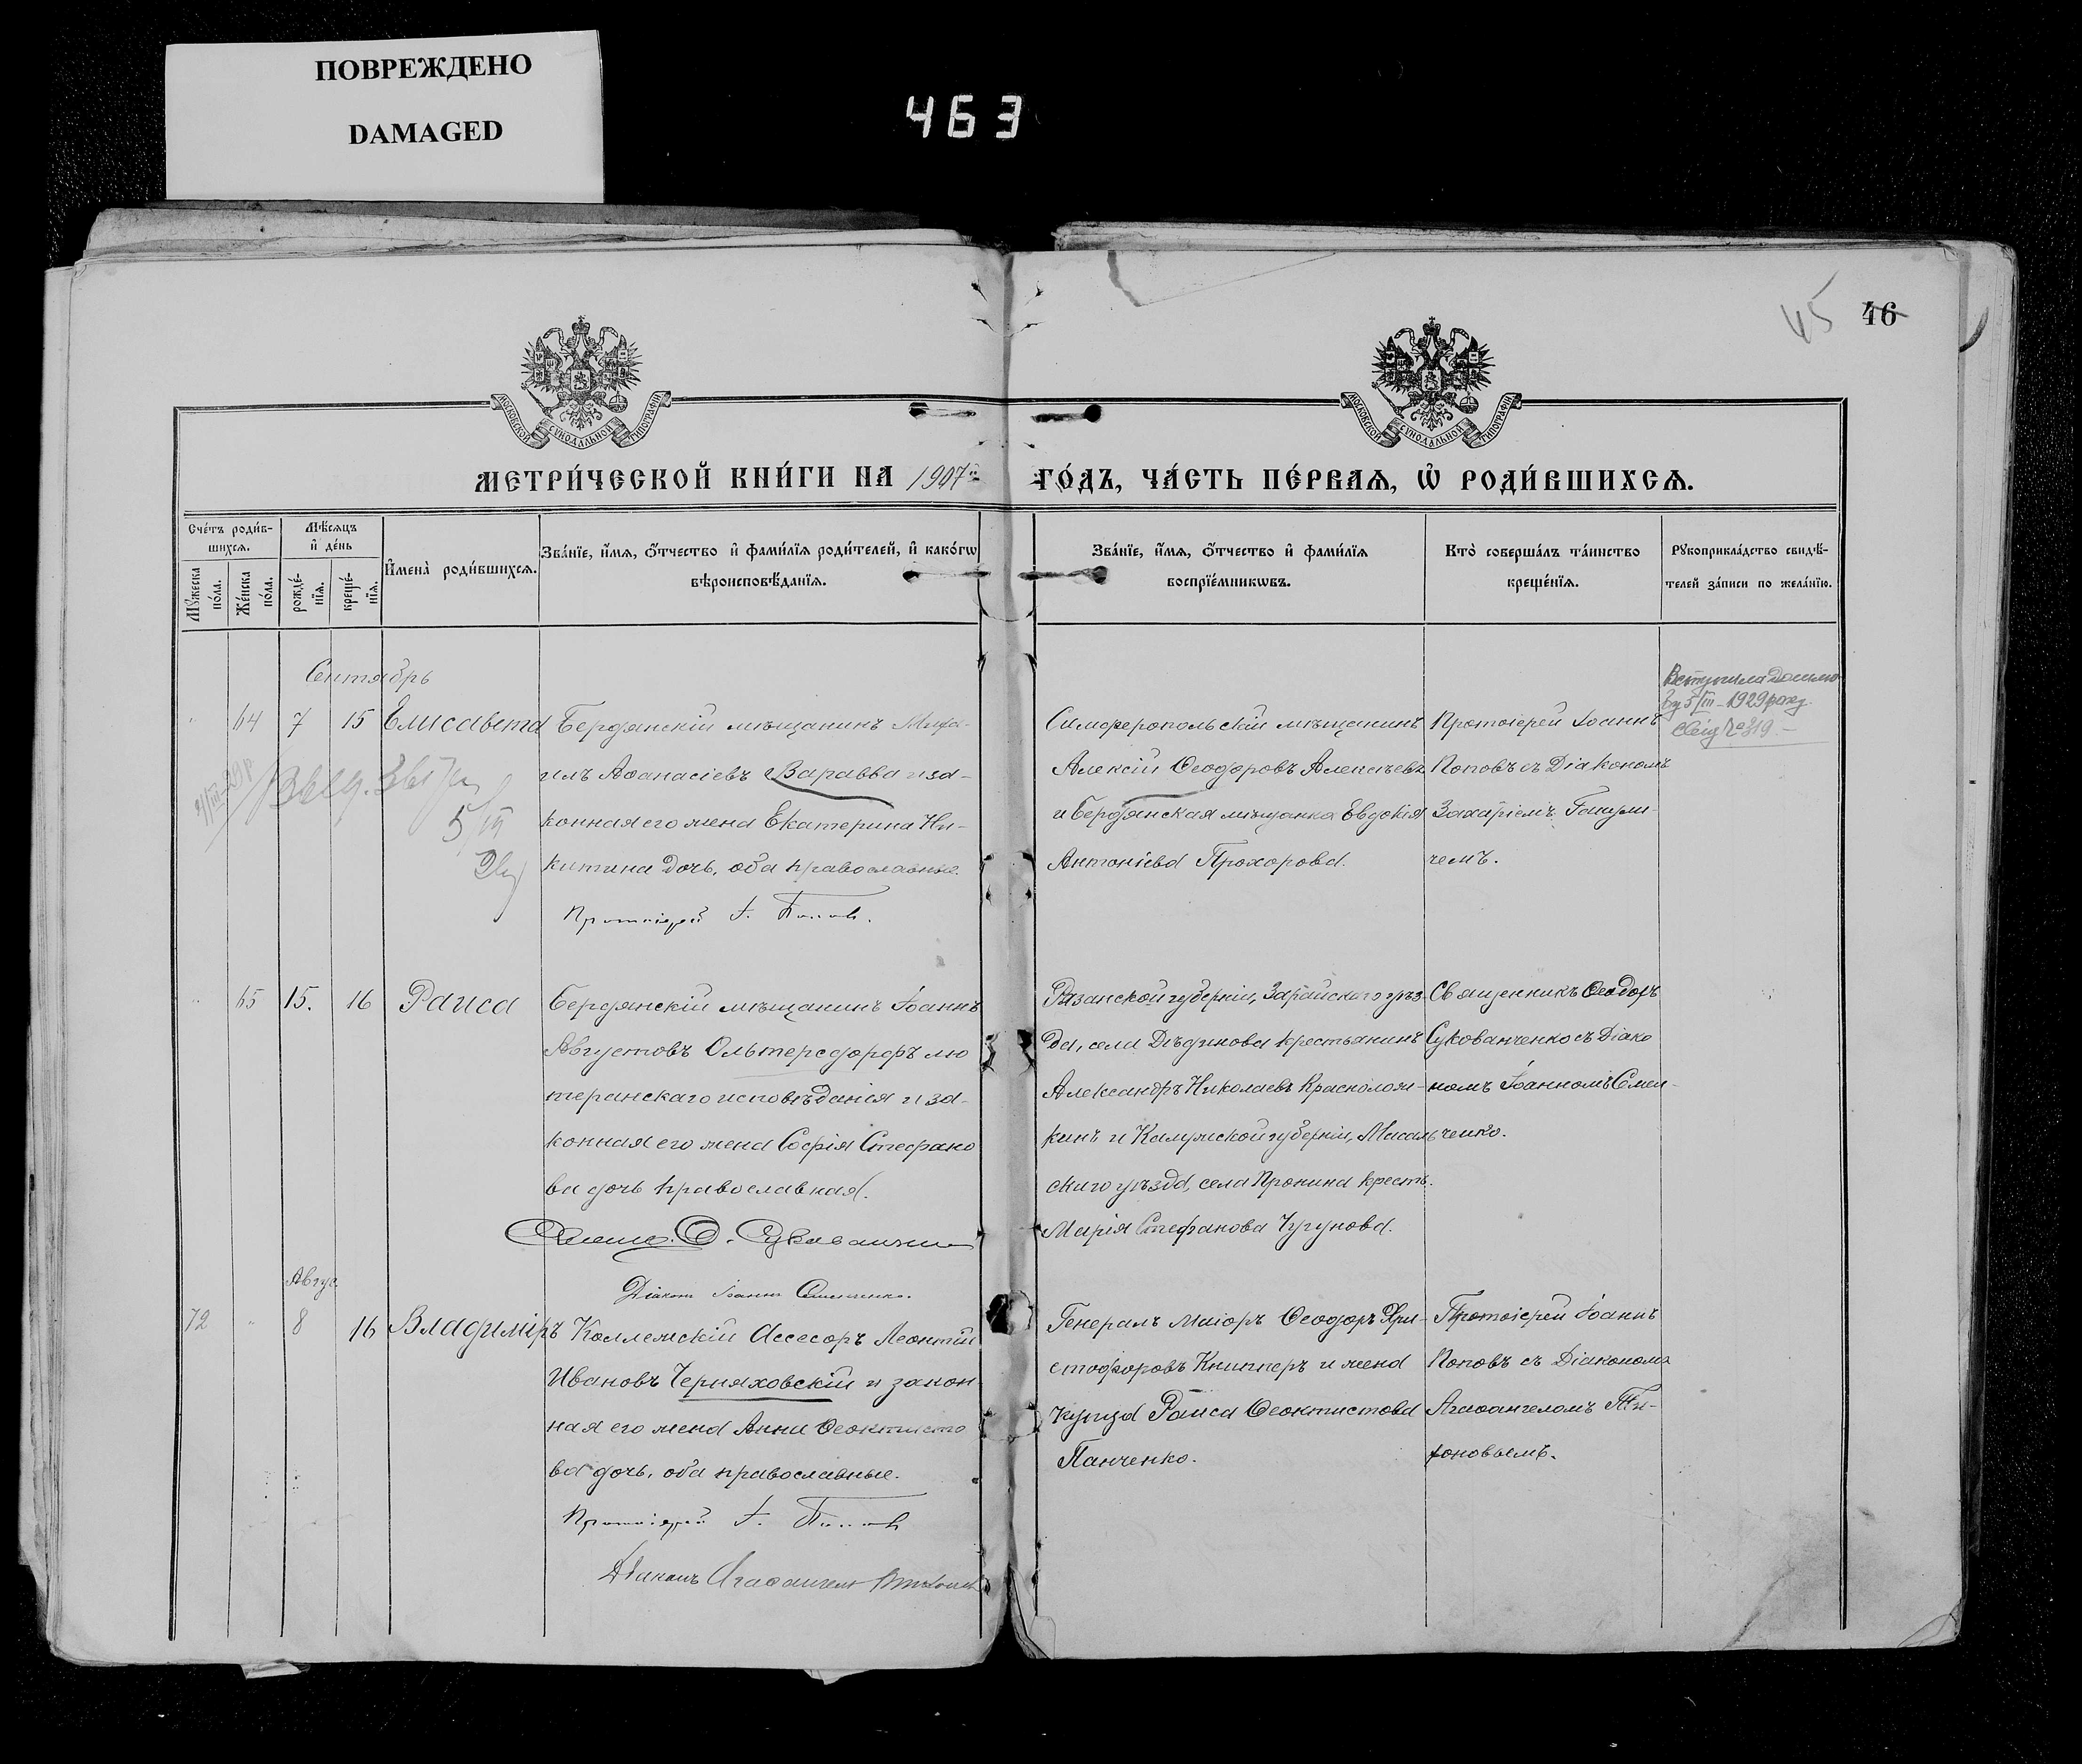 ПОВРЕЖДЕНО
DAMAGED
463
45 46
МОСКОВСКОЙ СУНОДАЛЬНОЙ ТИПОГРАФІИ
МОСКОВСКОЙ СУНОДАЛЬНОЙ ТИПОГРАФІИ
МЕТРИ́ЧЕСКОЙ КНИ́ГИ НА 1907й ГО́ДЪ, ЧА́СТЬ ПЕ́РВАѦ, Ѡ҆ РОДИ́ВШИХСѦ.
Сче́тъ роди́в-
шихсѧ.
Мꙋ́жеска по́ла.
Же́нска по́ла.
Мѣ́сѧцъ
и҆ де́нь
рожде́-нїѧ.
креще́-нїѧ.
И҆мена̀ роди́вшихсѧ.
Зва́нїе, и҆́мѧ, ѻ҆́тчество и҆ фами́лїѧ роди́телей, и҆ како́гѡ
вѣроисповѣ́данїѧ.
Зва́нїе, и҆́мѧ, ѻ҆́тчество и҆ фами́лїѧ
воспрїе́мникѡвъ.
Кто̀ соверша́лъ та́инство
креще́нїѧ.
Рꙋкоприкла́дство свидѣ́-
телей за́писи по жела́нїю.
Сентябрь
64 7 15 Елисавета
Бердянскій мѣщанинъ Миха-
илъ Аѳанасіевъ Варавва и за-
конная его жена Екатерина Ни-
китина дочь, оба православные.
Протоіерей І. Попов.
Симферопольскій мѣщанинъ
Алексій Ѳеодоровъ Алексѣевъ
и Бердянская мѣщанка Евдокія
Антоніева Прохорова.
Протоіерей Іоаннъ
Поповъ съ Діакономъ
Захаріемъ Ганули-
чемъ.
5/III-1929
№ 319.
5/III
65 15. 16 Раиса
Бердянскій мѣщанинъ Іоаннъ
Августовъ Ольтерсдорфъ лю
теранскаго исповѣданія и за-
конная его жена Софія Стефано
ва дочь православная.
Свящ. Ѳ. Сукованченко
Діаконъ Іоаннъ Семенченко.
Рязанской губерніи, Зарайскаго уѣз-
да, села Дѣдинова крестьянинъ
Александръ Николаевъ Краснолож-
кинъ и Калужской губерніи, Мисаль
скаго уѣзда, села Пронина крест.
Марія Стефанова Чугунова.
Священникъ Ѳеодоръ
Сукованченко съ Діако
номъ Іоанномъ Семен-
ченко.
Авгус.
72 8 16 Владиміръ
Коллежскій Ассесоръ Леонтій
Ивановъ Черняховскій и закон-
ная его жена Анна Ѳеоктисто
ва дочь, оба православные.
Протоіерей І. Попов
Діаконъ Агаѳангелъ
Генералъ Маіоръ Ѳеодоръ Хри-
стофоровъ Книпперъ и жена
купца Раиса Ѳеоктистова
Панченко.
Протоіерей Іоаннъ
Поповъ съ Діакономъ
Агаѳангеломъ